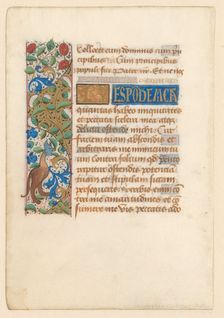 Collocet eum dominus cum prin
cipibus Cum principibus
populi sui Pater nr Et ne nos
RESPONDE MICHI
quantas habeo iniquitates
et peccata scelera mea atque
delicta ostende michi Cur
faciem tuam abscondis et
arbitraris me inimicum tu
um Contra folium quod vento
rapitur ostendis potentiam
tuam et stipulam siccam
persequeris Scribis enim con
tra me amaritudines et co
sumere me vis peccatis ado